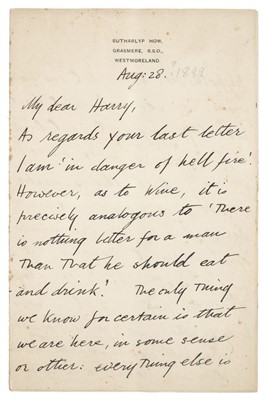 BUTHARLYP HOW,
GRASMERE, R.S.O.,
WESTMORELAND.
Aug: 28.
My dear Harry,
As regards your last letter
I am 'in danger of hell fire'.
However, as to Wine, it is
precisely analogous to 'There
is nothing better for a man
than that he should eat
and drink'. The only thing
we know for certain is that
we are here, in some sense
or other: everything else is